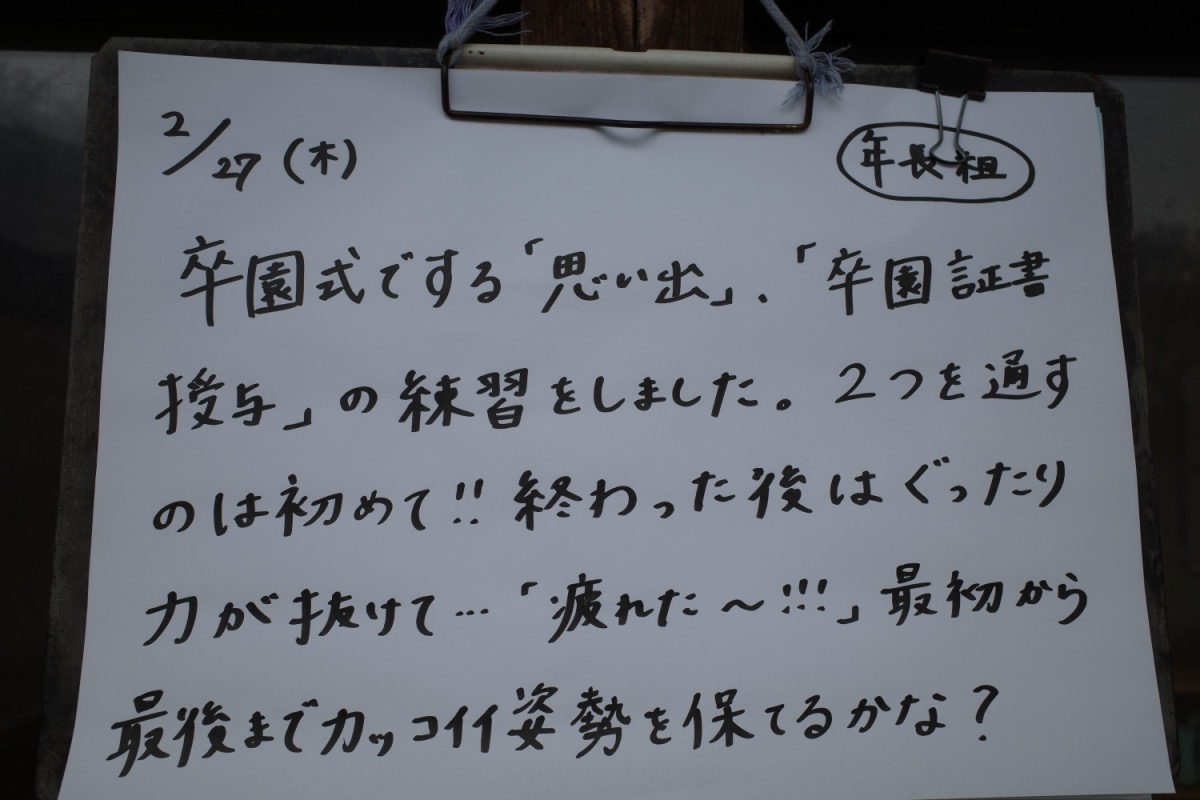 2/27(木) 年長組
卒園式でする「思い出」、「卒園証書
授与」の練習をしました。2つを通す
のは初めて!!終わった後はぐったり
力が抜けて…「疲れた～!!!」最初から
最後までカッコイイ姿勢を保てるかな?